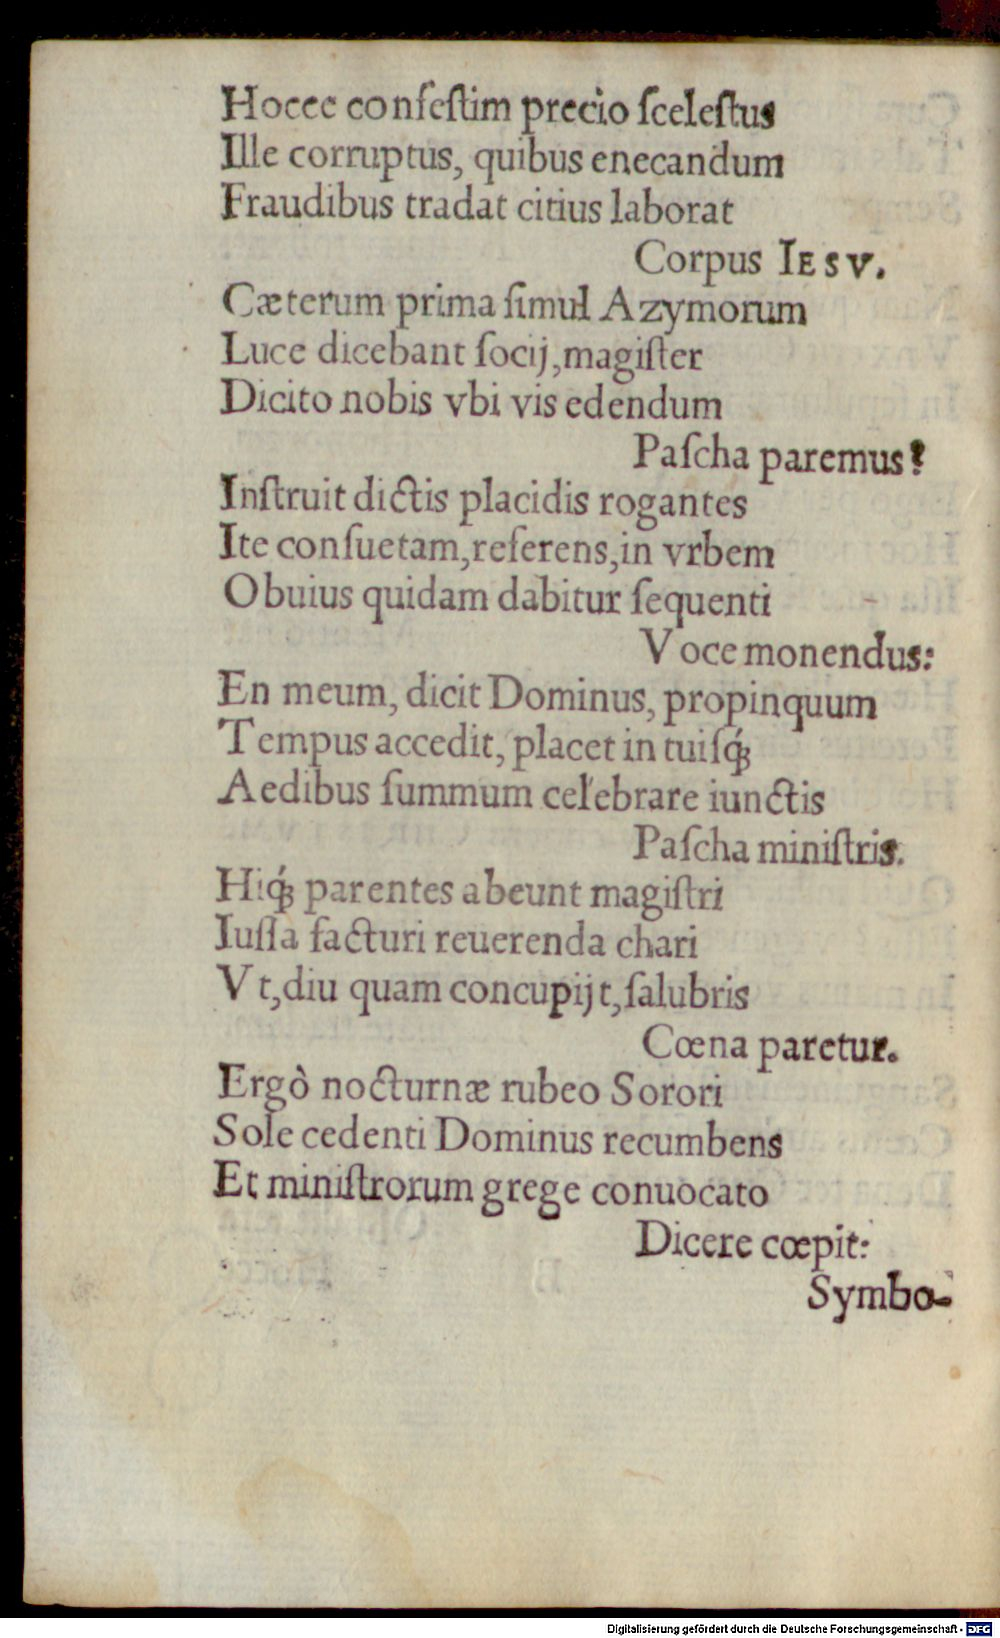 Hocce confestim precio ſceleſtus
Ille corruptus, quibus enecandum
Fraudibus tradat citius laborat
Corpus IESV.
Cæterum prima ſimul Azymorum
Luce dicebant ſocij, magiſter
Dicito nobis vbi vis edendum
Paſcha paremus?
Inſtruit dictis placidis rogantes
Ite conſuetam, referens, in vrbem
Obuius quidam dabitur ſequenti
Voce monendus:
En meum, dicit Dominus, propinquum
Tempus accedit, placet in tuiſq́;
Aedibus ſummum celebrare iunctis
Paſcha miniſtris.
Hiq́; parentes abeunt magiſtri
Iuſſa facturi reuerenda chari
Vt, diu quam concupijt, ſalubris
Cœna paretur.
Ergò nocturnæ rubeo Sorori
Sole cedenti Dominus recumbens
Et miniſtrorum grege conuocato
Dicere cœpit:
Symbo-
Digitalisierung gefördert durch die Deutsche Forschungsgemeinschaft - DFG